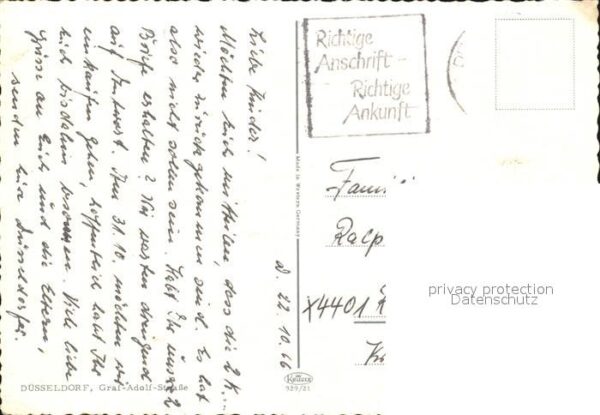 D. 22.10.66
Liebe Kinder!
Möchten Euch mitteilen, dass die 2 K...
wieder zurückgekommen sind. Es hat
also nicht sollen sein. Habt Ihr unsere 2
Briefe erhalten? Wir warten dringend
auf Antwort. Am 31.10. möchten wir
einkaufen gehen, hoffentlich habt Ihr
Euch bis dahin besonnen. Viele liebe
Grüsse an Euch und die Eltern,
senden Eure Düsseldorfer.
DÜSSELDORF, Graf-Adolf-Straße
Made in Western Germany
Krüger
929/21
Richtige
Anschrift -
Richtige
Ankunft
Fami
Ralp
X4401
privacy protection
Datenschutz